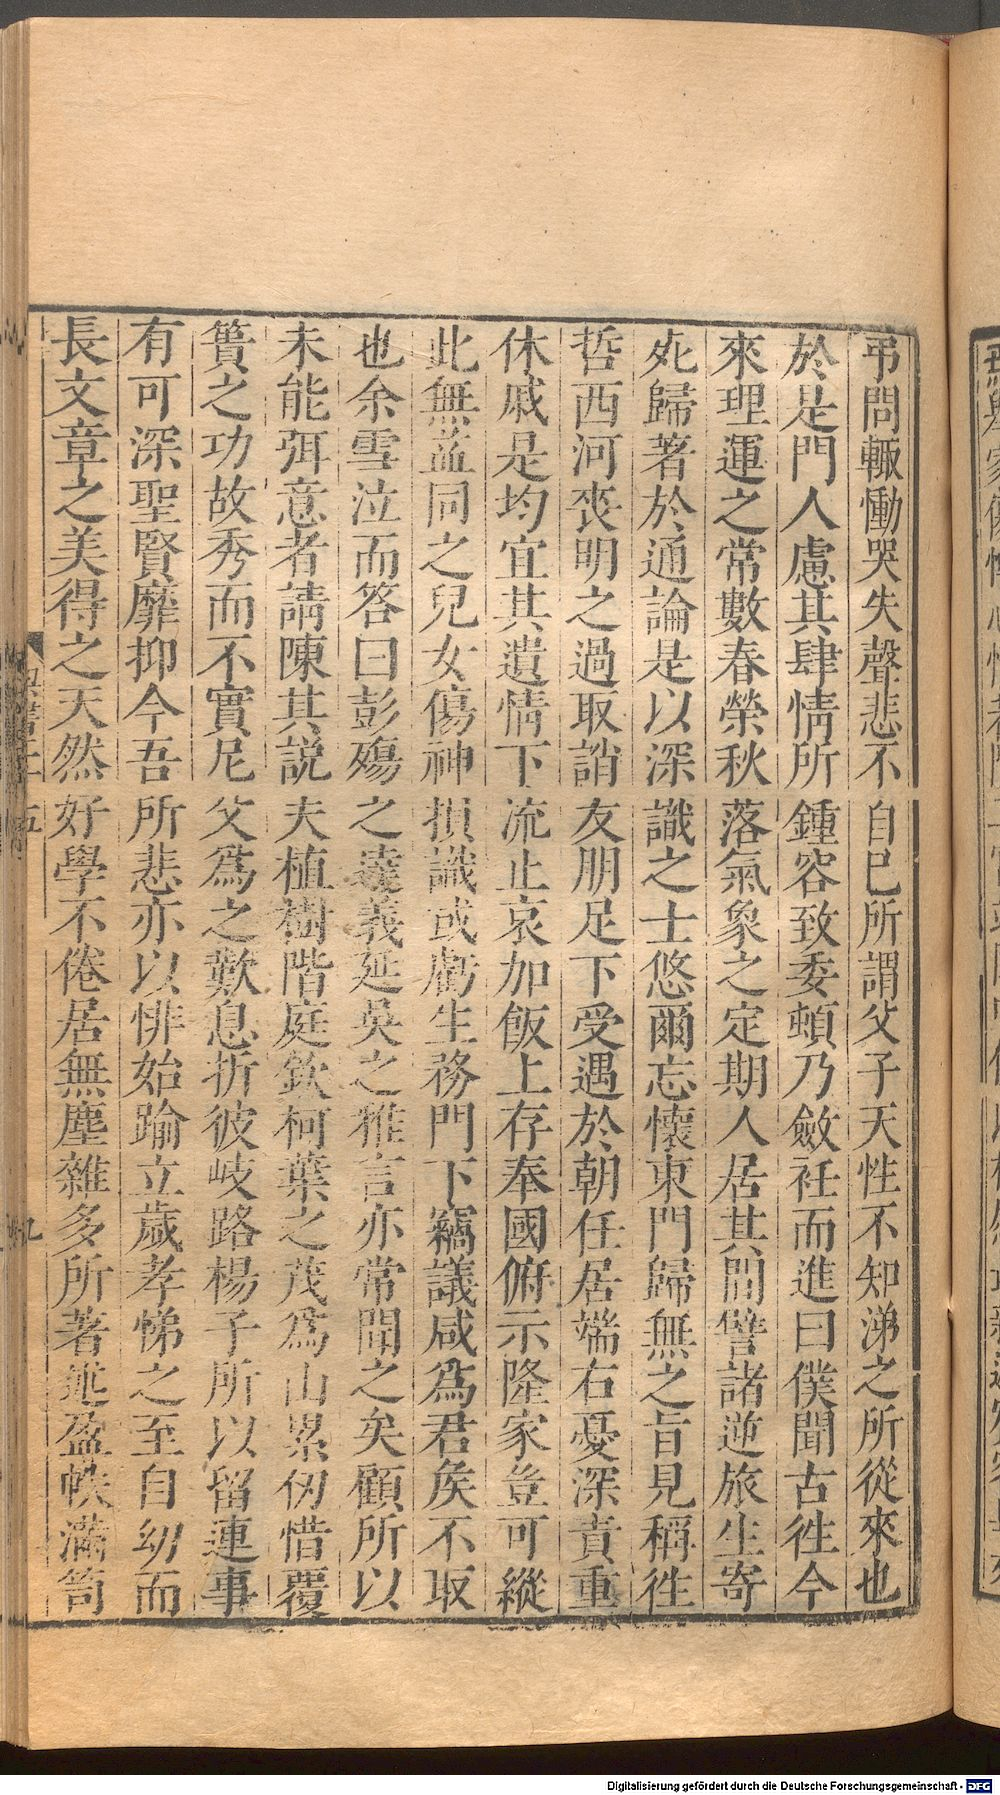 弔問輙慟哭失聲悲不自已所謂父子天性不知涕之所從來也
於是門人慮其肆情所鍾容致委頓乃斂袵而進曰僕聞古徃今
來理運之常數春榮秋落氣象之定期人居其間譬諸逆旅生寄
死歸著於通論是以深識之士悠爾忘懷東門歸無之旨見稱徃
哲西河丧明之過取誚友朋足下受遇於朝任居端右憂深責重
休戚是均宜其遺情下流止哀加飯上存奉國俯示隆家豈可縱
此無益同之兒女傷神損識或虧生務門下竊議咸爲君矦不取
也余雪泣而答曰彭殤之達義延吳之雅言亦常聞之矣顧所以
未能弭意者請陳其説夫植樹階庭欽柯葉之茂爲山累仞惜覆
簣之功故秀而不實尼父爲之歎息析彼岐路楊子所以留連事
有可深聖賢靡抑今吾所悲亦以悱始踰立歲孝悌之至自幼而
長文章之美得之天然好學不倦居無塵雜多所著述盈帙滿笥
Digitalisierung gefördert durch die Deutsche Forschungsgemeinschaft - DFG